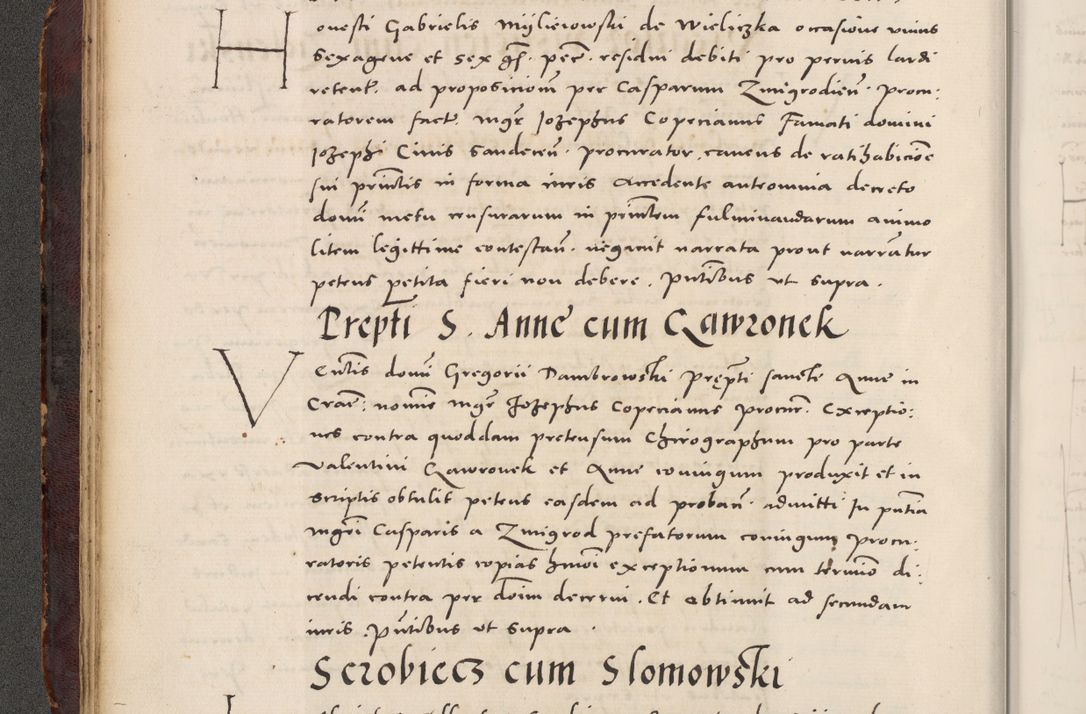 Honesti Gabrielis Myslieiowski de Wieliczka occasione unius
sexagene et sex gs. pecc. residui debiti pro pernis lardi
retent. ad proposicionem per Casparum Zmigrodien. procu:
ratorem fact. mgr Jozephus Copecianus Famati domini
Jozephi Civis Sandecen. procurator, cavens de ratihabicioe
sui princtis in forma iuris Accedente anteomnia decreto
domi metu censurarum in princtem fulminandarum animo
litem legittime contestan. negavit narrata prout narrantur
petens petita fieri non debere. Pntibus ut supra.
Prepti S. Anne cum Gawronek
Ventis domi Gregorii Dambrowski Prepti sancte Anne in
Crac: nomie mgr Jozephus Copecianus procur. Exceptio:
nes contra quoddam pretensum Chirographum pro parte
Valentini Gawronek et Anne coniugum produxit et in
scriptis obtulit petens easdem ad proban. admitti In pntia
mgri Casparis a Zmigrod prefatorum coniugum procu:
ratoris petentis copias hmoi exceptionum cum termio di:
cendi contra per doim decerni. Et obtinuit ad secundam
iuris. Pntibus ut supra.
Scrobiecz cum Slomowski